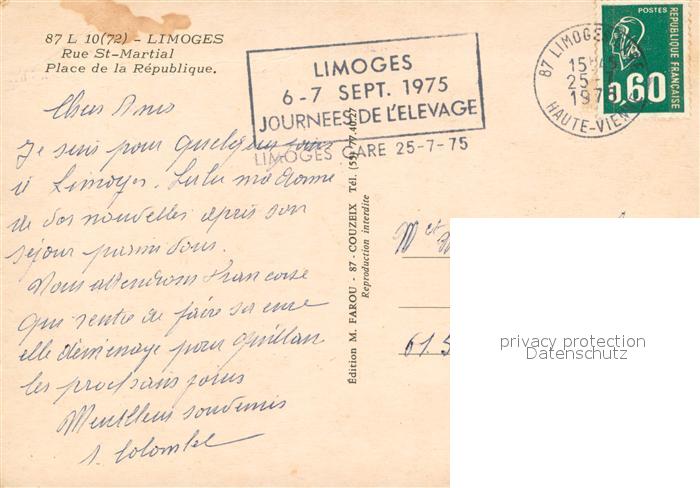 87 L 10(72) - LIMOGES
Rue St-Martial
Place de la République.
LIMOGES
6-7 SEPT. 1975
JOURNEES DE L'ELEVAGE
LIMOGES GARE 25-7-75
87 LIMOGES GARE
25-7
HAUTE-VIENNE
POSTES
REPUBLIQUE FRANÇAISE
0,60
Chers Amis
Je suis pour quelques jours
à Limoges. Lulu m'a donné
de vos nouvelles après son
séjour parmi vous.
Nous attendrons Francoise
qui rentre de faire sa cure
elle déménage pour Quillan
les prochains jours
Meilleurs souvenirs
Colombel
Edition M. FAROU - 87 - COUZEIX Tél. (55) 77.40.27
Reproduction interdite
M et M
61.
privacy protection
Datenschutz